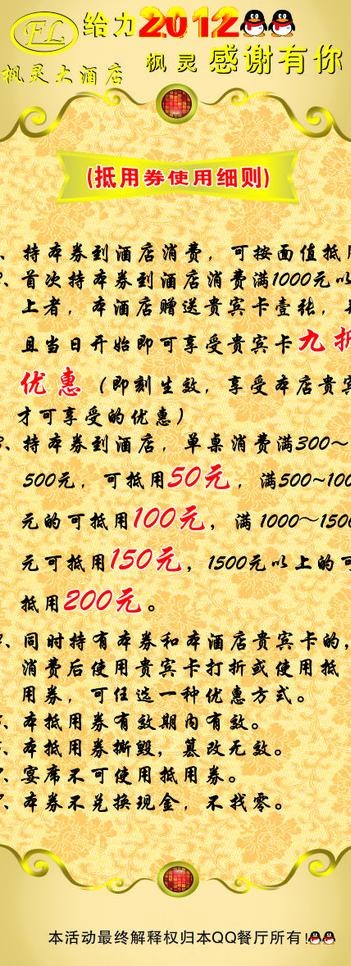 FL 给力2012
枫灵大酒店 枫灵 感谢有你
(抵用券使用细则)
、持本券到酒店消费，可按面值抵用
、首次持本券到酒店消费满1000元以
上者，本酒店赠送贵宾卡壹张，
且当日开始即可享受贵宾卡九折
优惠（即刻生效，享受本店贵宾
才可享受的优惠）
、持本券到酒店，单桌消费满300～
500元，可抵用50元，满500~100
元的可抵用100元，满1000～1500
元可抵用150元，1500元以上的可
抵用200元。
、同时持有本券和本酒店贵宾卡的，
消费后使用贵宾卡打折或使用抵
用券，可任选一种优惠方式。
、本抵用券有效期内有效。
、本抵用券撕毁，篡改无效。
、宴席不可使用抵用券。
、本券不兑换现金，不找零。
本活动最终解释权归本QQ餐厅所有！